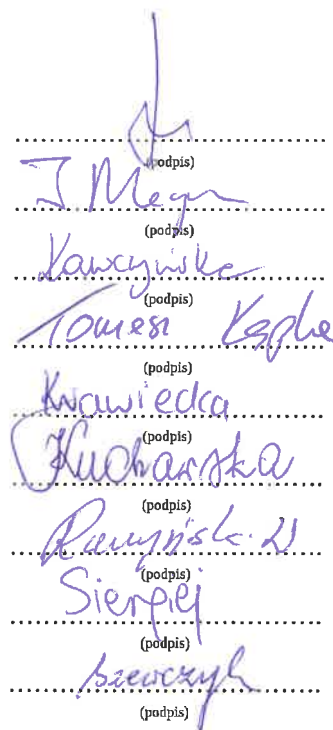 (podpis)
J. Meger
(podpis)
Kawczyńska
(podpis)
Tomasz
(podpis)
Krawiecka
(podpis)
Kucharska
(podpis)
(podpis)
Siergiej
(podpis)
Szewczyk
(podpis)